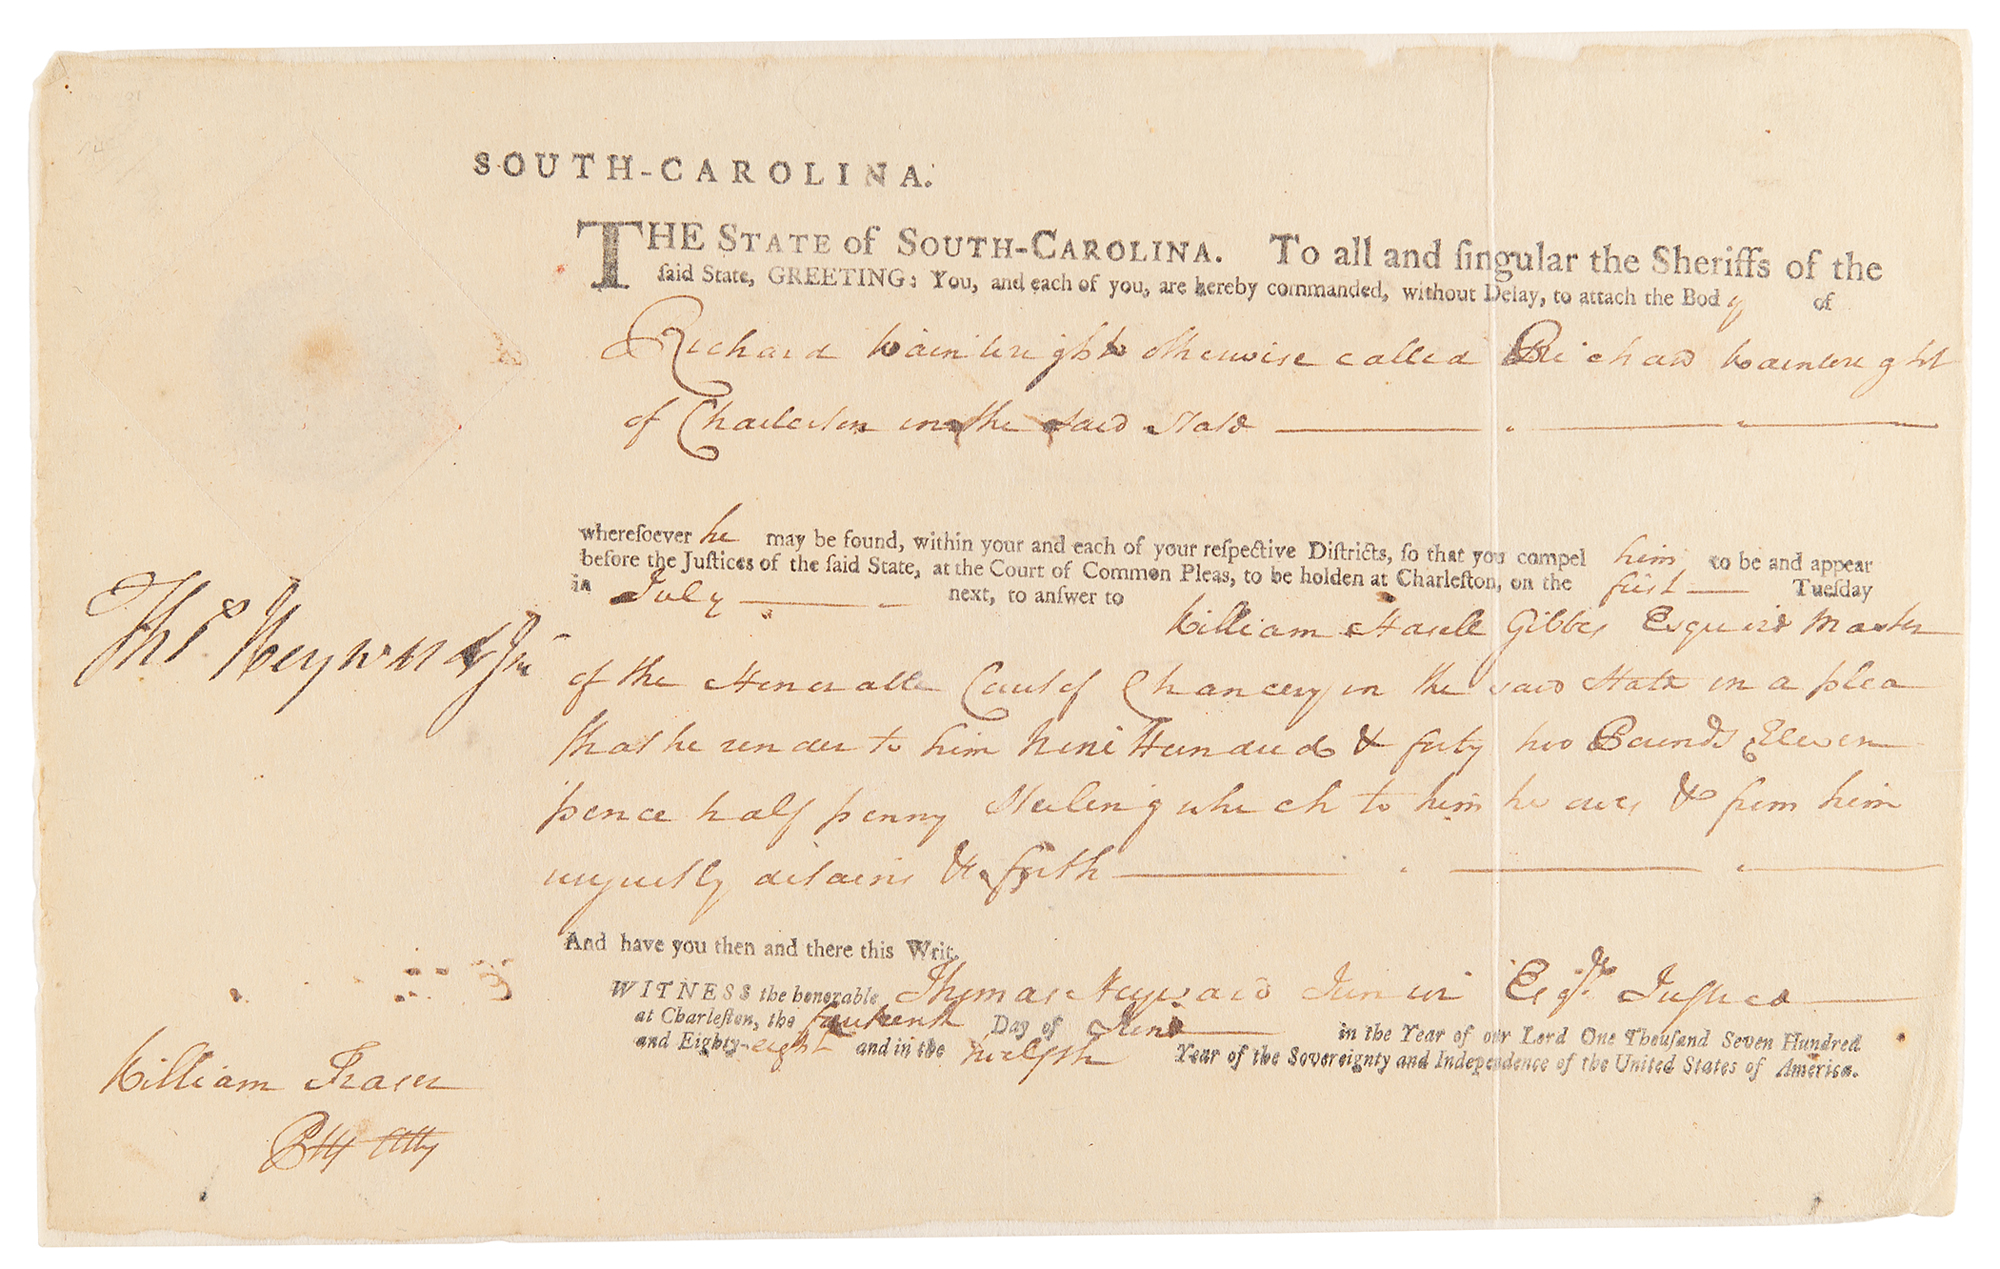 SOUTH-CAROLINA.
THE STATE of SOUTH-CAROLINA. To all and ſingular the Sheriffs of the
ſaid State, GREETING: You, and each of you, are hereby commanded, without Delay, to attach the Body of
Richard Wainwright otherwise called Richard Wainwright
of Charleston in the said State
whereſoever he may be found, within your and each of your reſpective Diſtricts, ſo that you compel him to be and appear
before the Juſtices of the ſaid State, at the Court of Common Pleas, to be holden at Charleſton, on the first Tueſday
in July next, to anſwer to
William Hasell Gibbes Esquire Master
of the Honorable Court of Chancery in the said State in a plea
that he render to him Nine Hundred & forty two Pounds Eleven
pence half penny Sterling which to him he owes & from him
unjustly detains & forth
And have you then and there this Writ.
WITNESS the honorable Thomas Heyward Junior Esqr. Justice
at Charleſton, the fourteenth Day of June in the Year of our Lord One Thouſand Seven Hundred
and Eighty-eight and in the twelfth Year of the Sovereignty and Independence of the United States of America.
Thos. Heyward Jun
William Fraser
Atty